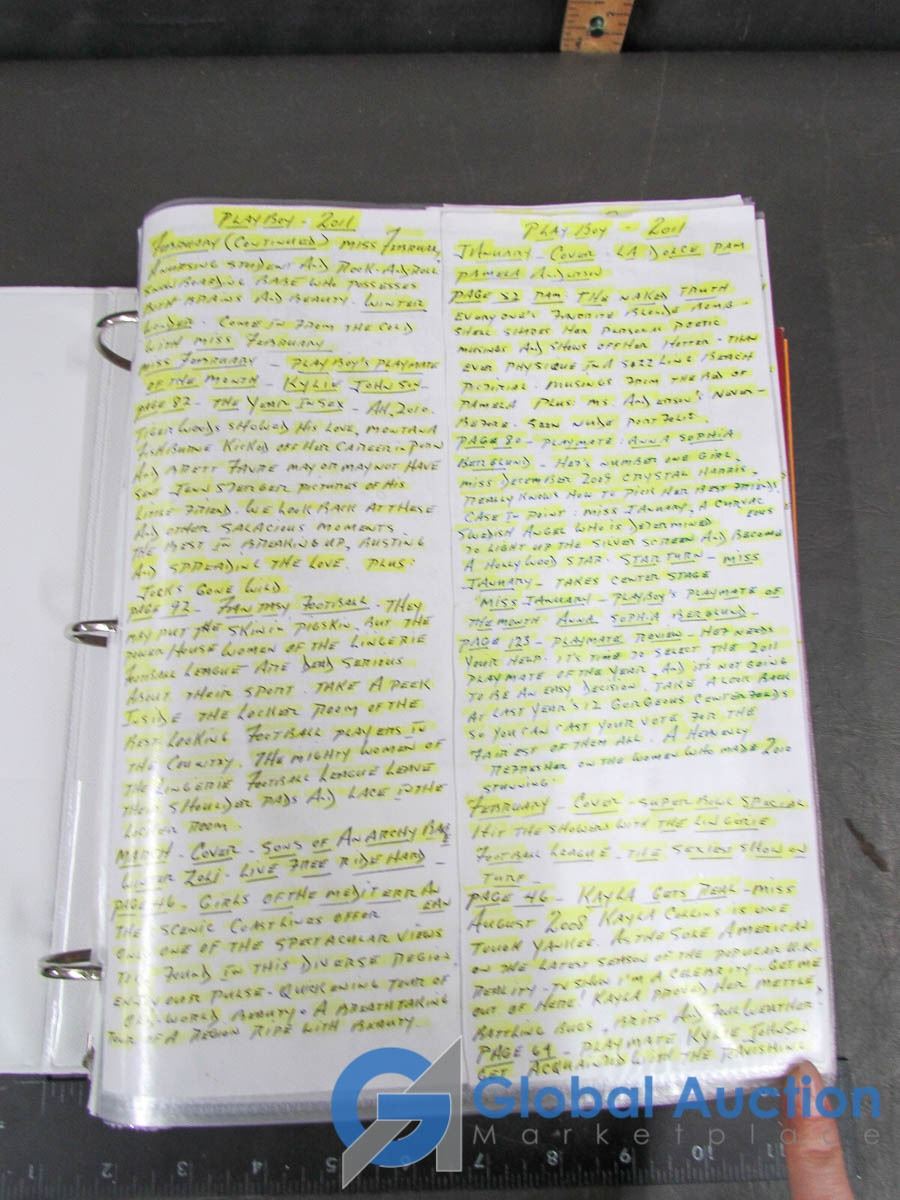 PLAYBOY - 2011
FEBRUARY (CONTINUED) MISS FEBRUARY,
A NURSING STUDENT AND ROCK-AND-ROLL
SNOWBOARDING BABE WHO POSSESSES
BOTH BRAINS AND BEAUTY. WINTER
WONDER. COME IN FROM THE COLD
WITH MISS FEBRUARY.
MISS FEBRUARY - PLAYBOY'S PLAYMATE
OF THE MONTH - KYLIE JOHNSON -
PAGE 82 - THE YEAR IN SEX - AH, 2010.
TIGER WOODS SHOWED HIS LOVE, MONTANA
FISHBURNE KICKED OFF HER CAREER IN PORN
AND BRETT FAVRE MAY OR MAY NOT HAVE
SENT JENN STERGER PICTURES OF HIS
LITTLE FRIEND. WE LOOK BACK AT THESE
AND OTHER SALACIOUS MOMENTS.
THE BEST IN BREAKING UP, BUSTING
AND SPREADING THE LOVE. PLUS:
JOCKS GONE WILD
PAGE 92 - FANTASY FOOTBALL - THEY
MAY PUT THE SKIN IN PIGSKIN, BUT THE
POWERHOUSE WOMEN OF THE LINGERIE
FOOTBALL LEAGUE ARE DEAD SERIOUS
ABOUT THEIR SPORT. TAKE A PEEK
INSIDE THE LOCKER ROOM OF THE
BEST LOOKING FOOTBALL PLAYERS IN
THE COUNTRY. THE MIGHTY WOMEN OF
THE LINGERIE FOOTBALL LEAGUE LEAVE
THEIR SHOULDER PADS AND LACE IN THE
LOCKER ROOM.
MARCH - COVER - SONS OF ANARCHY BABE
WINTER ZOLI - LIVE FREE RIDE HARD -
PAGE 46 - GIRLS OF THE MEDITERRANEAN
THE SCENIC COASTLINES OFFER
ONLY ONE OF THE SPECTACULAR VIEWS
TO BE FOUND IN THIS DIVERSE REGION.
ENJOY OUR PULSE-QUICKENING TOUR OF
OLD-WORLD BEAUTY. A BREATHTAKING
TOUR OF A REGION RIPE WITH BEAUTY.
PLAYBOY - 2011
JANUARY - COVER - LA DOLCE PAM
PAMELA ANDERSON
PAGE 52 PAM: THE NAKED TRUTH
EVERYONE'S FAVORITE BLONDE BOMB-
SHELL SHARES HER PERSONAL POETIC
MUSINGS AND SHOWS OFF HER HOTTER-THAN
EVER PHYSIQUE IN A SIZZLING BEACH
PICTORIAL. MUSINGS FROM THE BED OF
PAMELA PLUS: MS. ANDERSON'S NEVER-
BEFORE-SEEN NUDE PORTFOLIO.
PAGE 80 - PLAYMATE: ANNA SOPHIA
BERGLUND - HEF'S NUMBER ONE GIRL,
MISS DECEMBER 2009 CRYSTAL HARRIS -
REALLY KNOWS HOW TO PICK HER BEST FRIENDS.
CASE IN POINT: MISS JANUARY, A CURVACEOUS
SWEDISH ANGEL WHO IS DETERMINED
TO LIGHT UP THE SILVER SCREEN AND BECOME
A HOLLYWOOD STAR. STAR TURN - MISS
JANUARY - TAKES CENTER STAGE
MISS JANUARY - PLAYBOY'S PLAYMATE OF
THE MONTH - ANNA SOPHIA BERGLUND -
PAGE 123 - PLAYMATE REVIEW - HEF NEEDS
YOUR HELP. IT'S TIME TO SELECT THE 2011
PLAYMATE OF THE YEAR, AND IT'S NOT GOING
TO BE AN EASY DECISION. TAKE A LOOK BACK
AT LAST YEAR'S 12 GORGEOUS CENTERFOLDS
SO YOU CAN CAST YOUR VOTE FOR THE
FAIREST OF THEM ALL. A HEAVENLY
REFRESHER ON THE WOMEN WHO MADE 2010
STUNNING.
FEBRUARY - COVER - SUPER BOWL SPECIAL
HIT THE SHOWERS WITH THE LINGERIE
FOOTBALL LEAGUE - THE SEXIEST SHOW ON
TURF -
PAGE 46 - KAYLA GETS REAL - MISS
AUGUST 2008 KAYLA COLLINS IS ONE
TOUGH YANKEE. AS THE SOLE AMERICAN
ON THE LATEST SEASON OF THE POPULAR U.K.
REALITY-TV SHOW I'M A CELEBRITY... GET ME
OUT OF HERE! KAYLA PROVED HER METTLE,
BATTLING BUGS, BRITS AND FOUL WEATHER.
PAGE 64 - PLAYMATE KYLIE JOHNSON
GET ACQUAINTED WITH THE RAVISHING
Global Auction
Marketplace
1 2 3 4 5 6 7 8 9 10 11